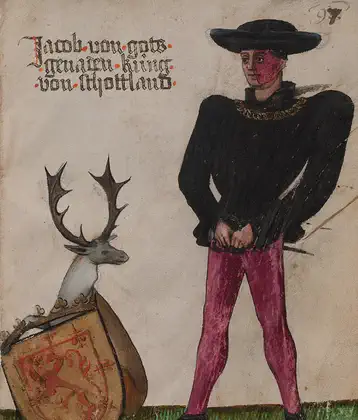 97
Jacob · von · gots ·
genaden · kùng ·
· von · schottland ·